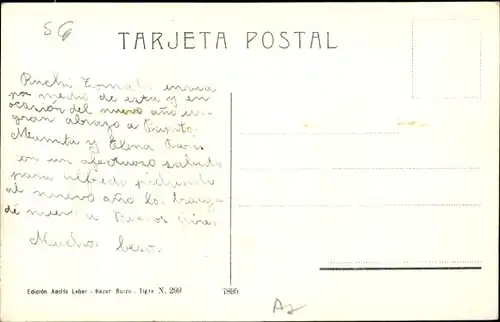 56
TARJETA POSTAL
Ruchi envia
por medio de esta y en
ocasión del nuevo año un
gran abrazo a Papito,
Mamita y Elena
con un afectuoso saludo
para pidiendo
al nuevo año los
de nuevo a Buenos Aires.
Muchos besos.
Edición Adolfo Laber - Bazar Suizo - Tigre N. 299
7895